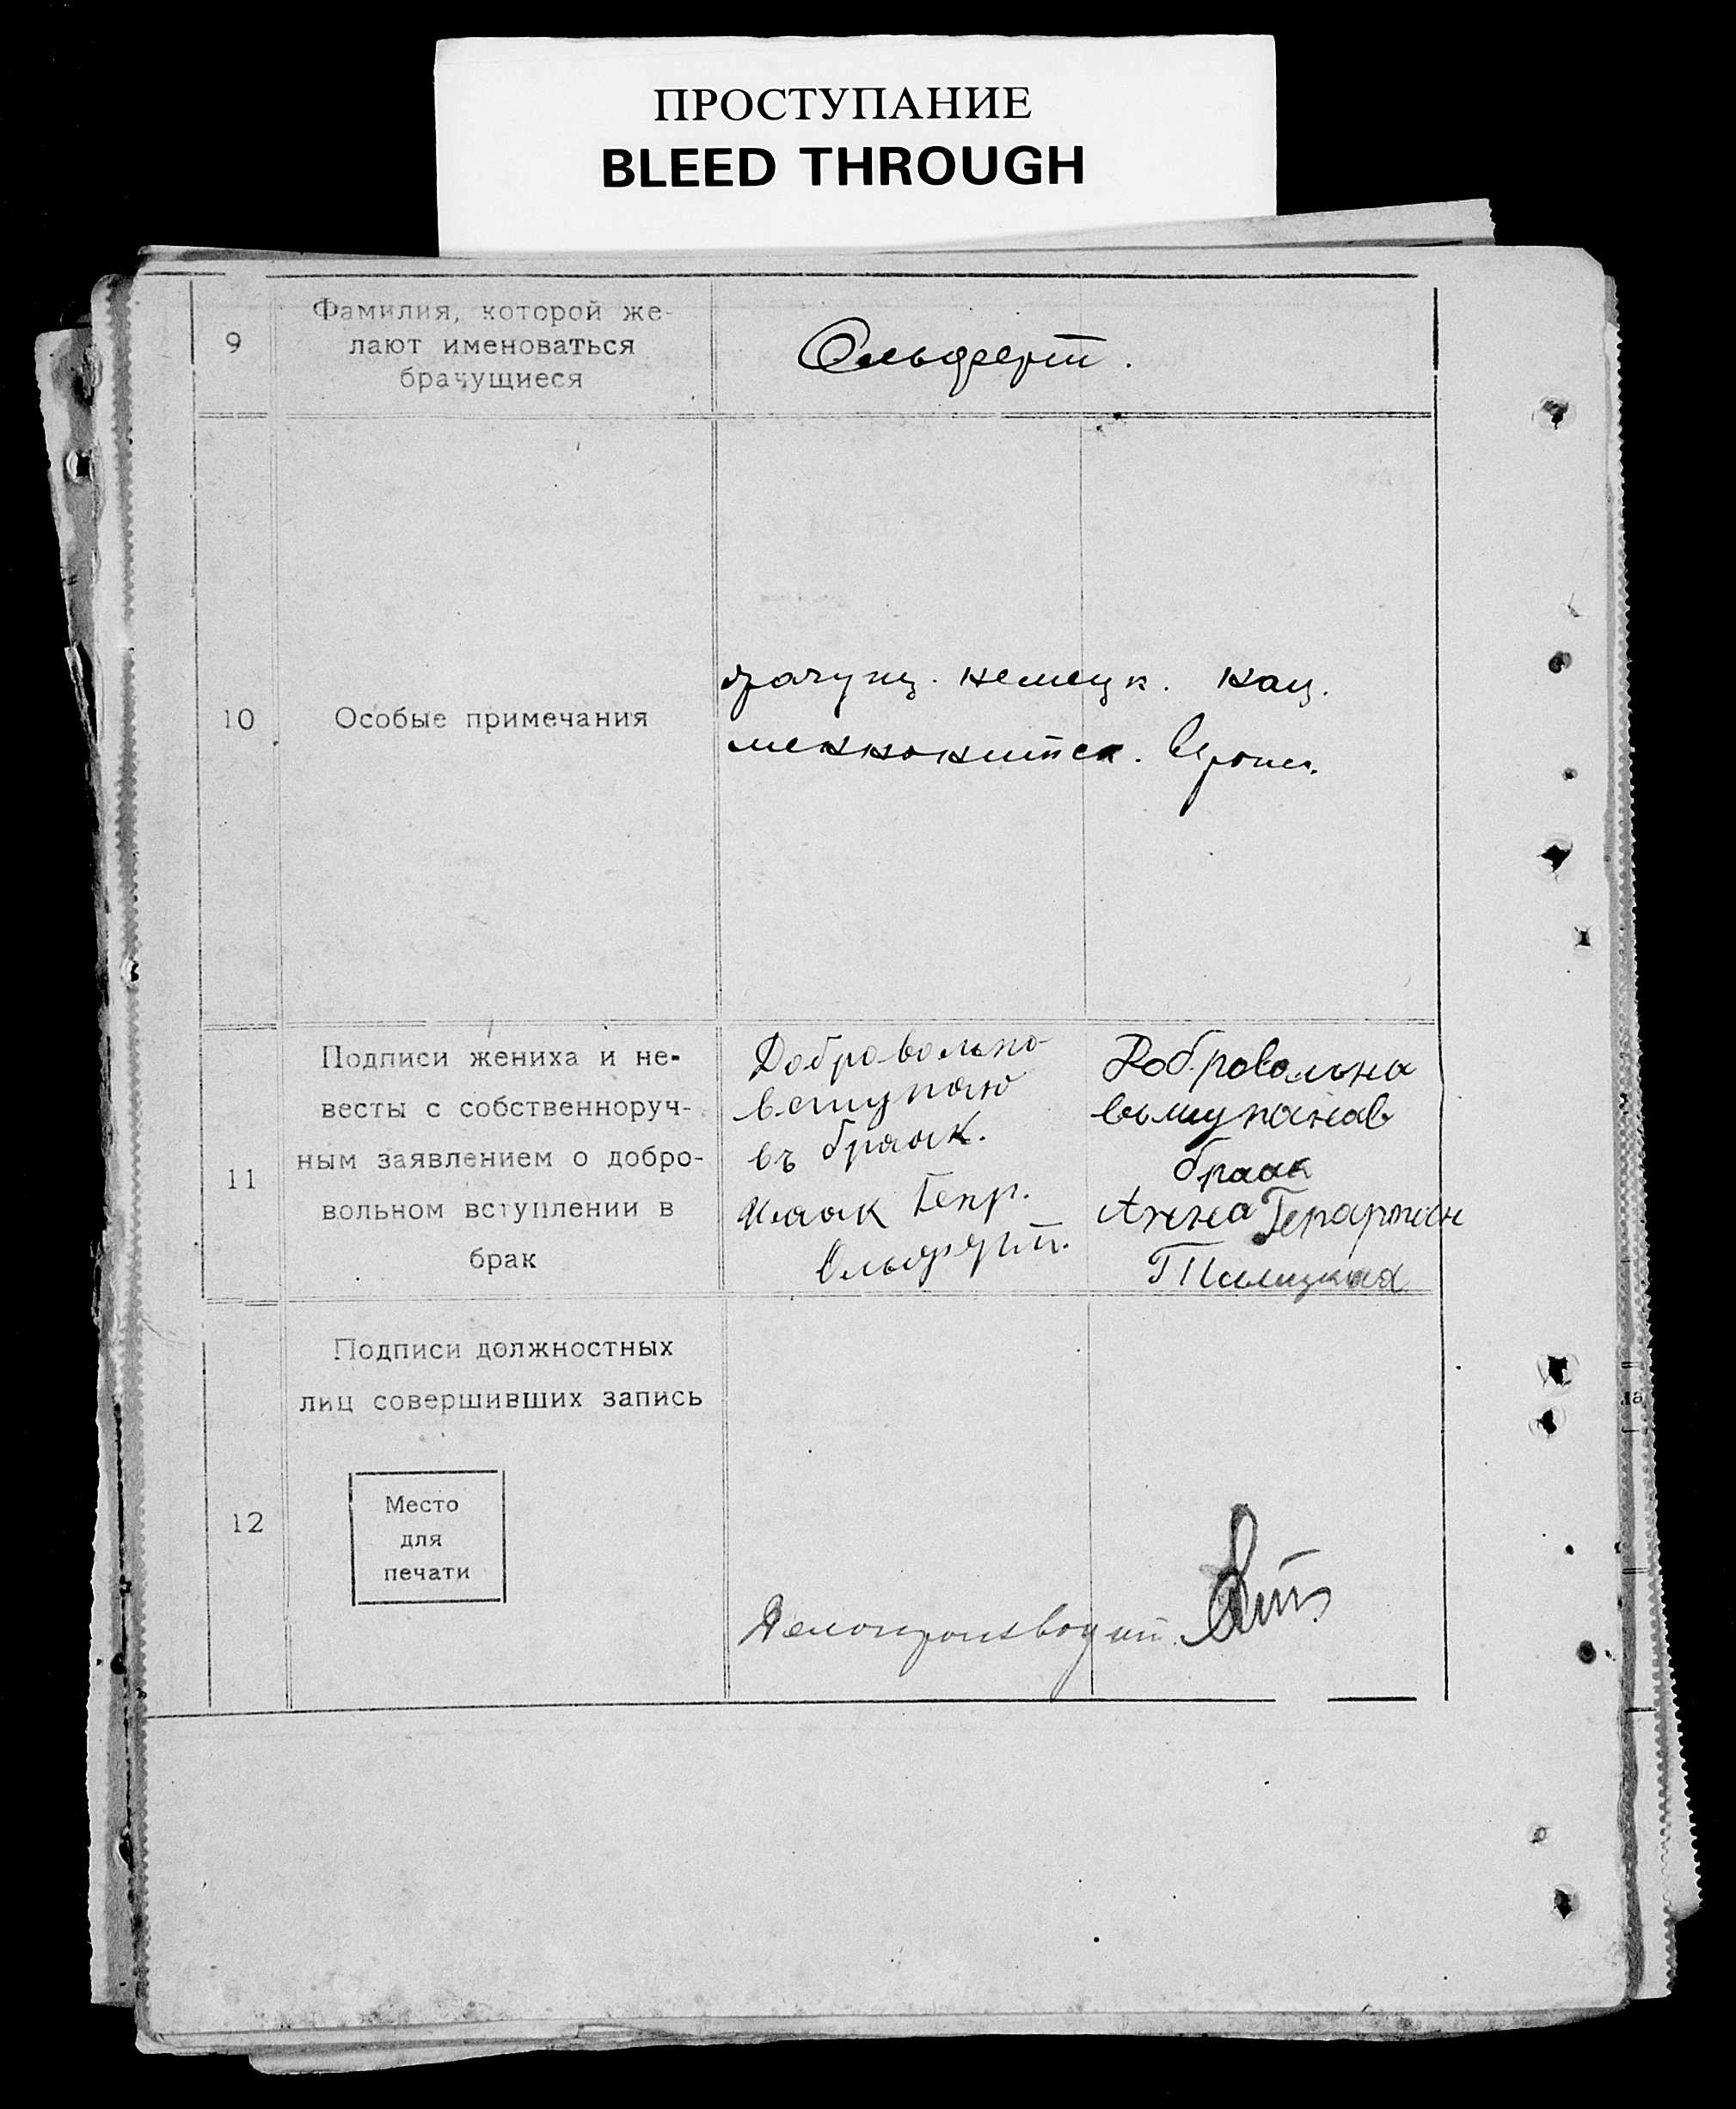 ПРОСТУПАНИЕ
BLEED THROUGH
9
Фамилия, которой же-
лают именоваться
брачущиеся
Ольферт.
10
Особые примечания
брачущ. немецк. нац.
меннонитск.
11
Подписи жениха и не-
весты с собственноруч-
ным заявлением о добро-
вольном вступлении в
брак
Добровольно
вступаю
въ браак.
Исаак Генр.
Ольферт.
Добровольна
браак
Анна
12
Подписи должностных
лиц совершивших запись
Место
для
печати
Делопроизводит.